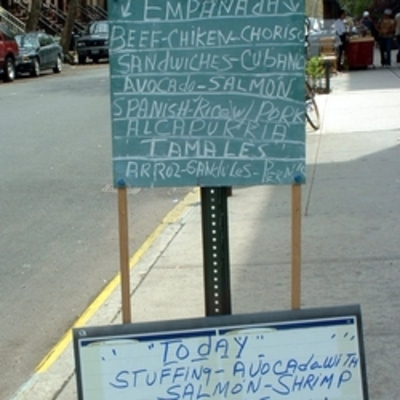 ↓ EMPANADA ↓
BEEF-CHIKEN-CHORIS
SANDWICHES-CUBANO
AVOCADO-SALMÓN
SPANISH-RICE W/ PORK
ALCAPURRIA
TAMALES
ARROZ-GANDULES-PERNIL
"TODAY"
STUFFING-AVOCADO WITH
SALMON-SHRIMP